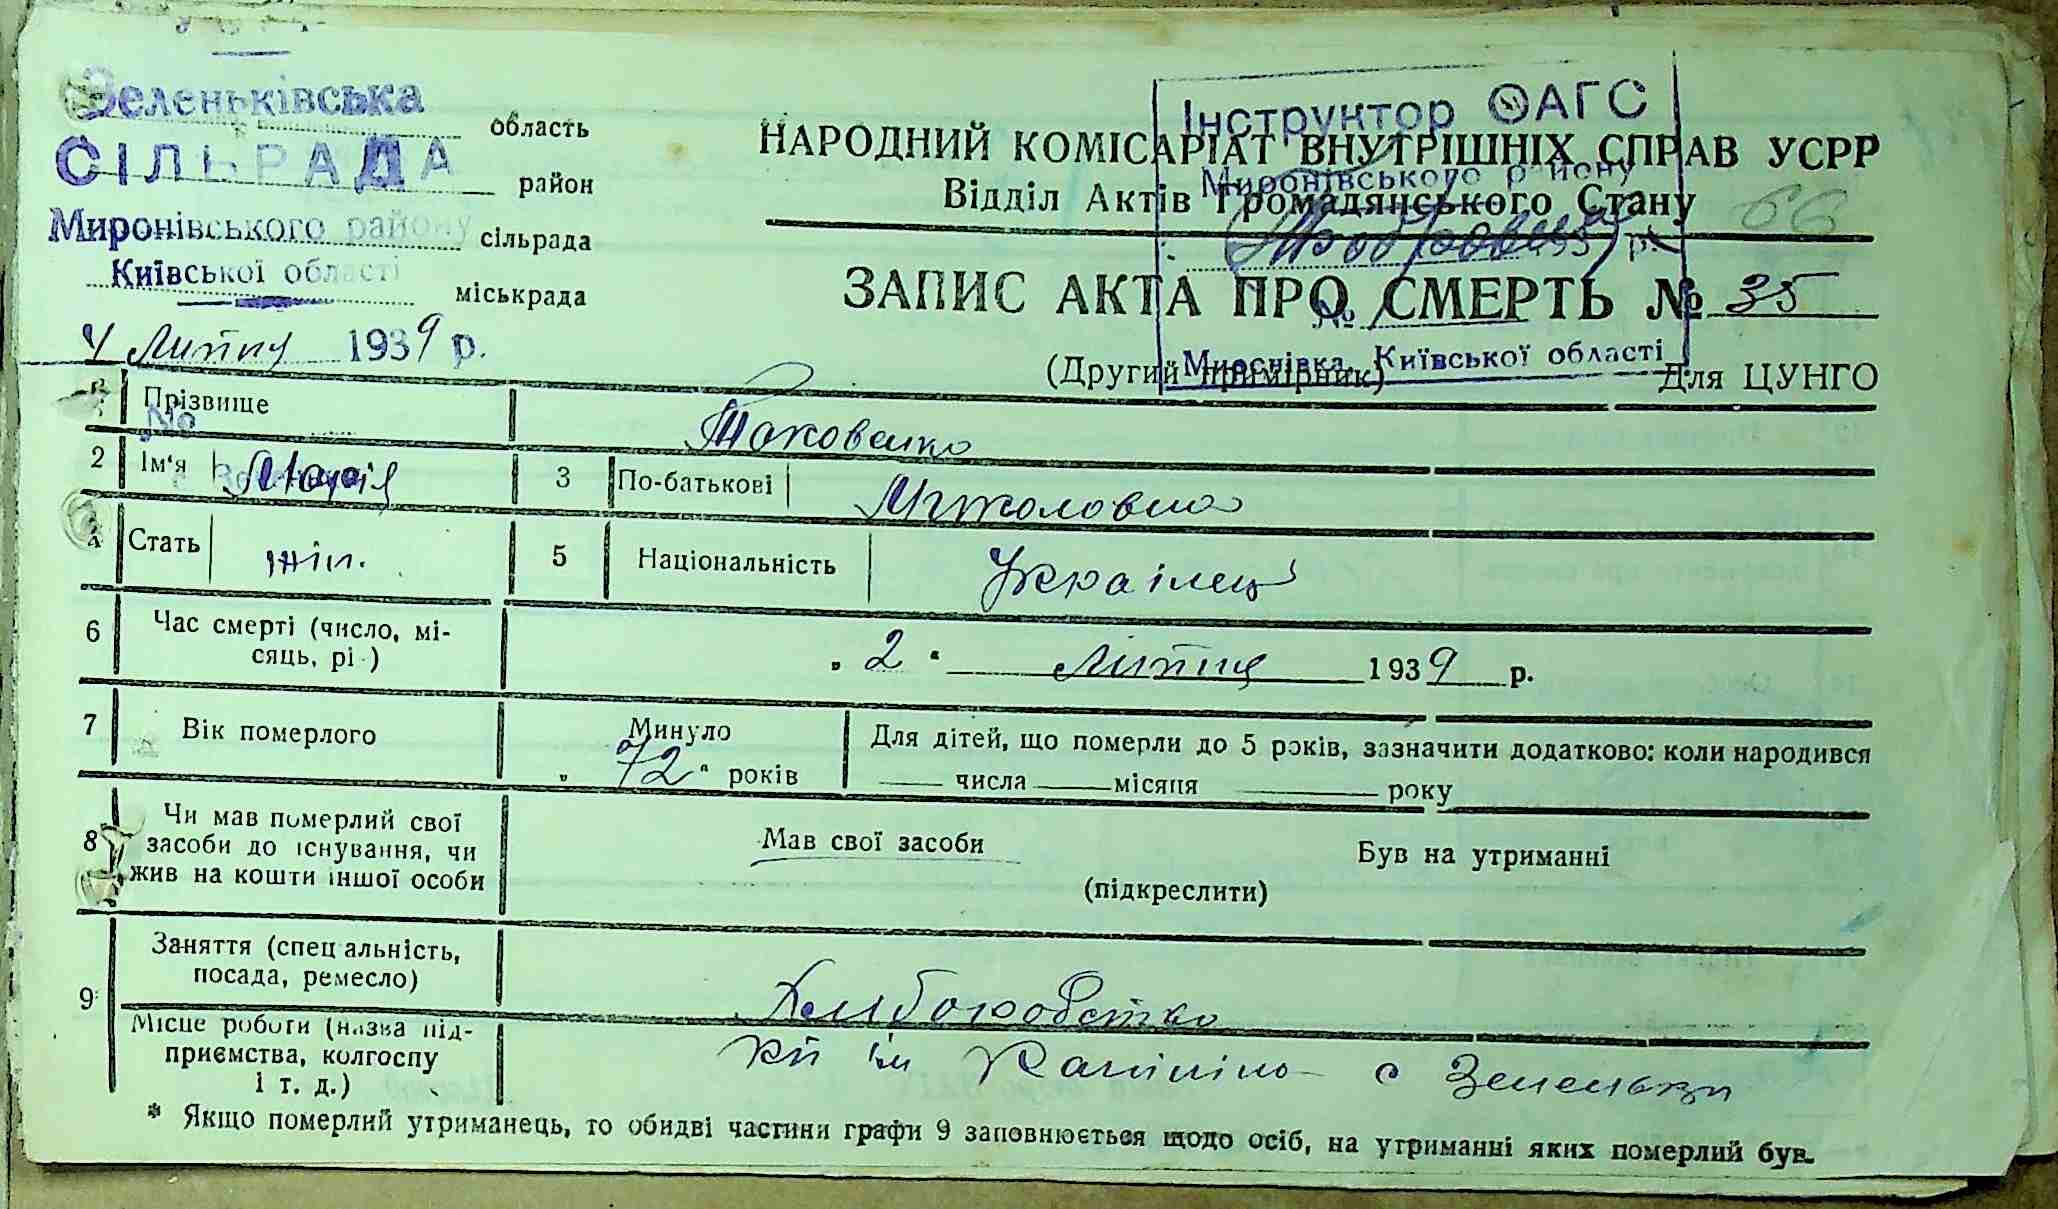 Зеленьківська
СІЛЬРАДА
Миронівського району
Київської області
область
район
сільрада
міськрада
4 Липня 1939 р.
Інструктор ОАГС
НАРОДНИЙ КОМІСАРІАТ ВНУТРІШНІХ СПРАВ УСРР
Миронівського району
Відділ Актів Громадянського Стану
66
193 р.
ЗАПИС АКТА ПРО СМЕРТЬ № 35
№
Миронівка, Київської області
(Другий примірник) Для ЦУНГО
Прізвище
№
2 Ім'я Марія 3 По-батькові Миколовна
4 Стать жін. 5 Національність Українец
6 Час смерті (число, мі-
сяць, рі )
„ 2 “ Липня 1939 р.
7 Вік померлого Минуло
„ 72 “ років
Для дітей, що померли до 5 років, зазначити додатково: коли народився
числа місяця року
8 Чи мав померлий свої
засоби до існування, чи
жив на кошти іншої особи
Мав свої засоби Був на утриманні
(підкреслити)
9 Заняття (спец альність,
посада, ремесло)
Хлиборобство
Місце роботи (назва під-
приємства, колгоспу
і т. д.)
ім Калініна с Зеленьки
* Якщо померлий утриманець, то обидві частини графи 9 заповнюється щодо осіб, на утриманні яких померлий був.